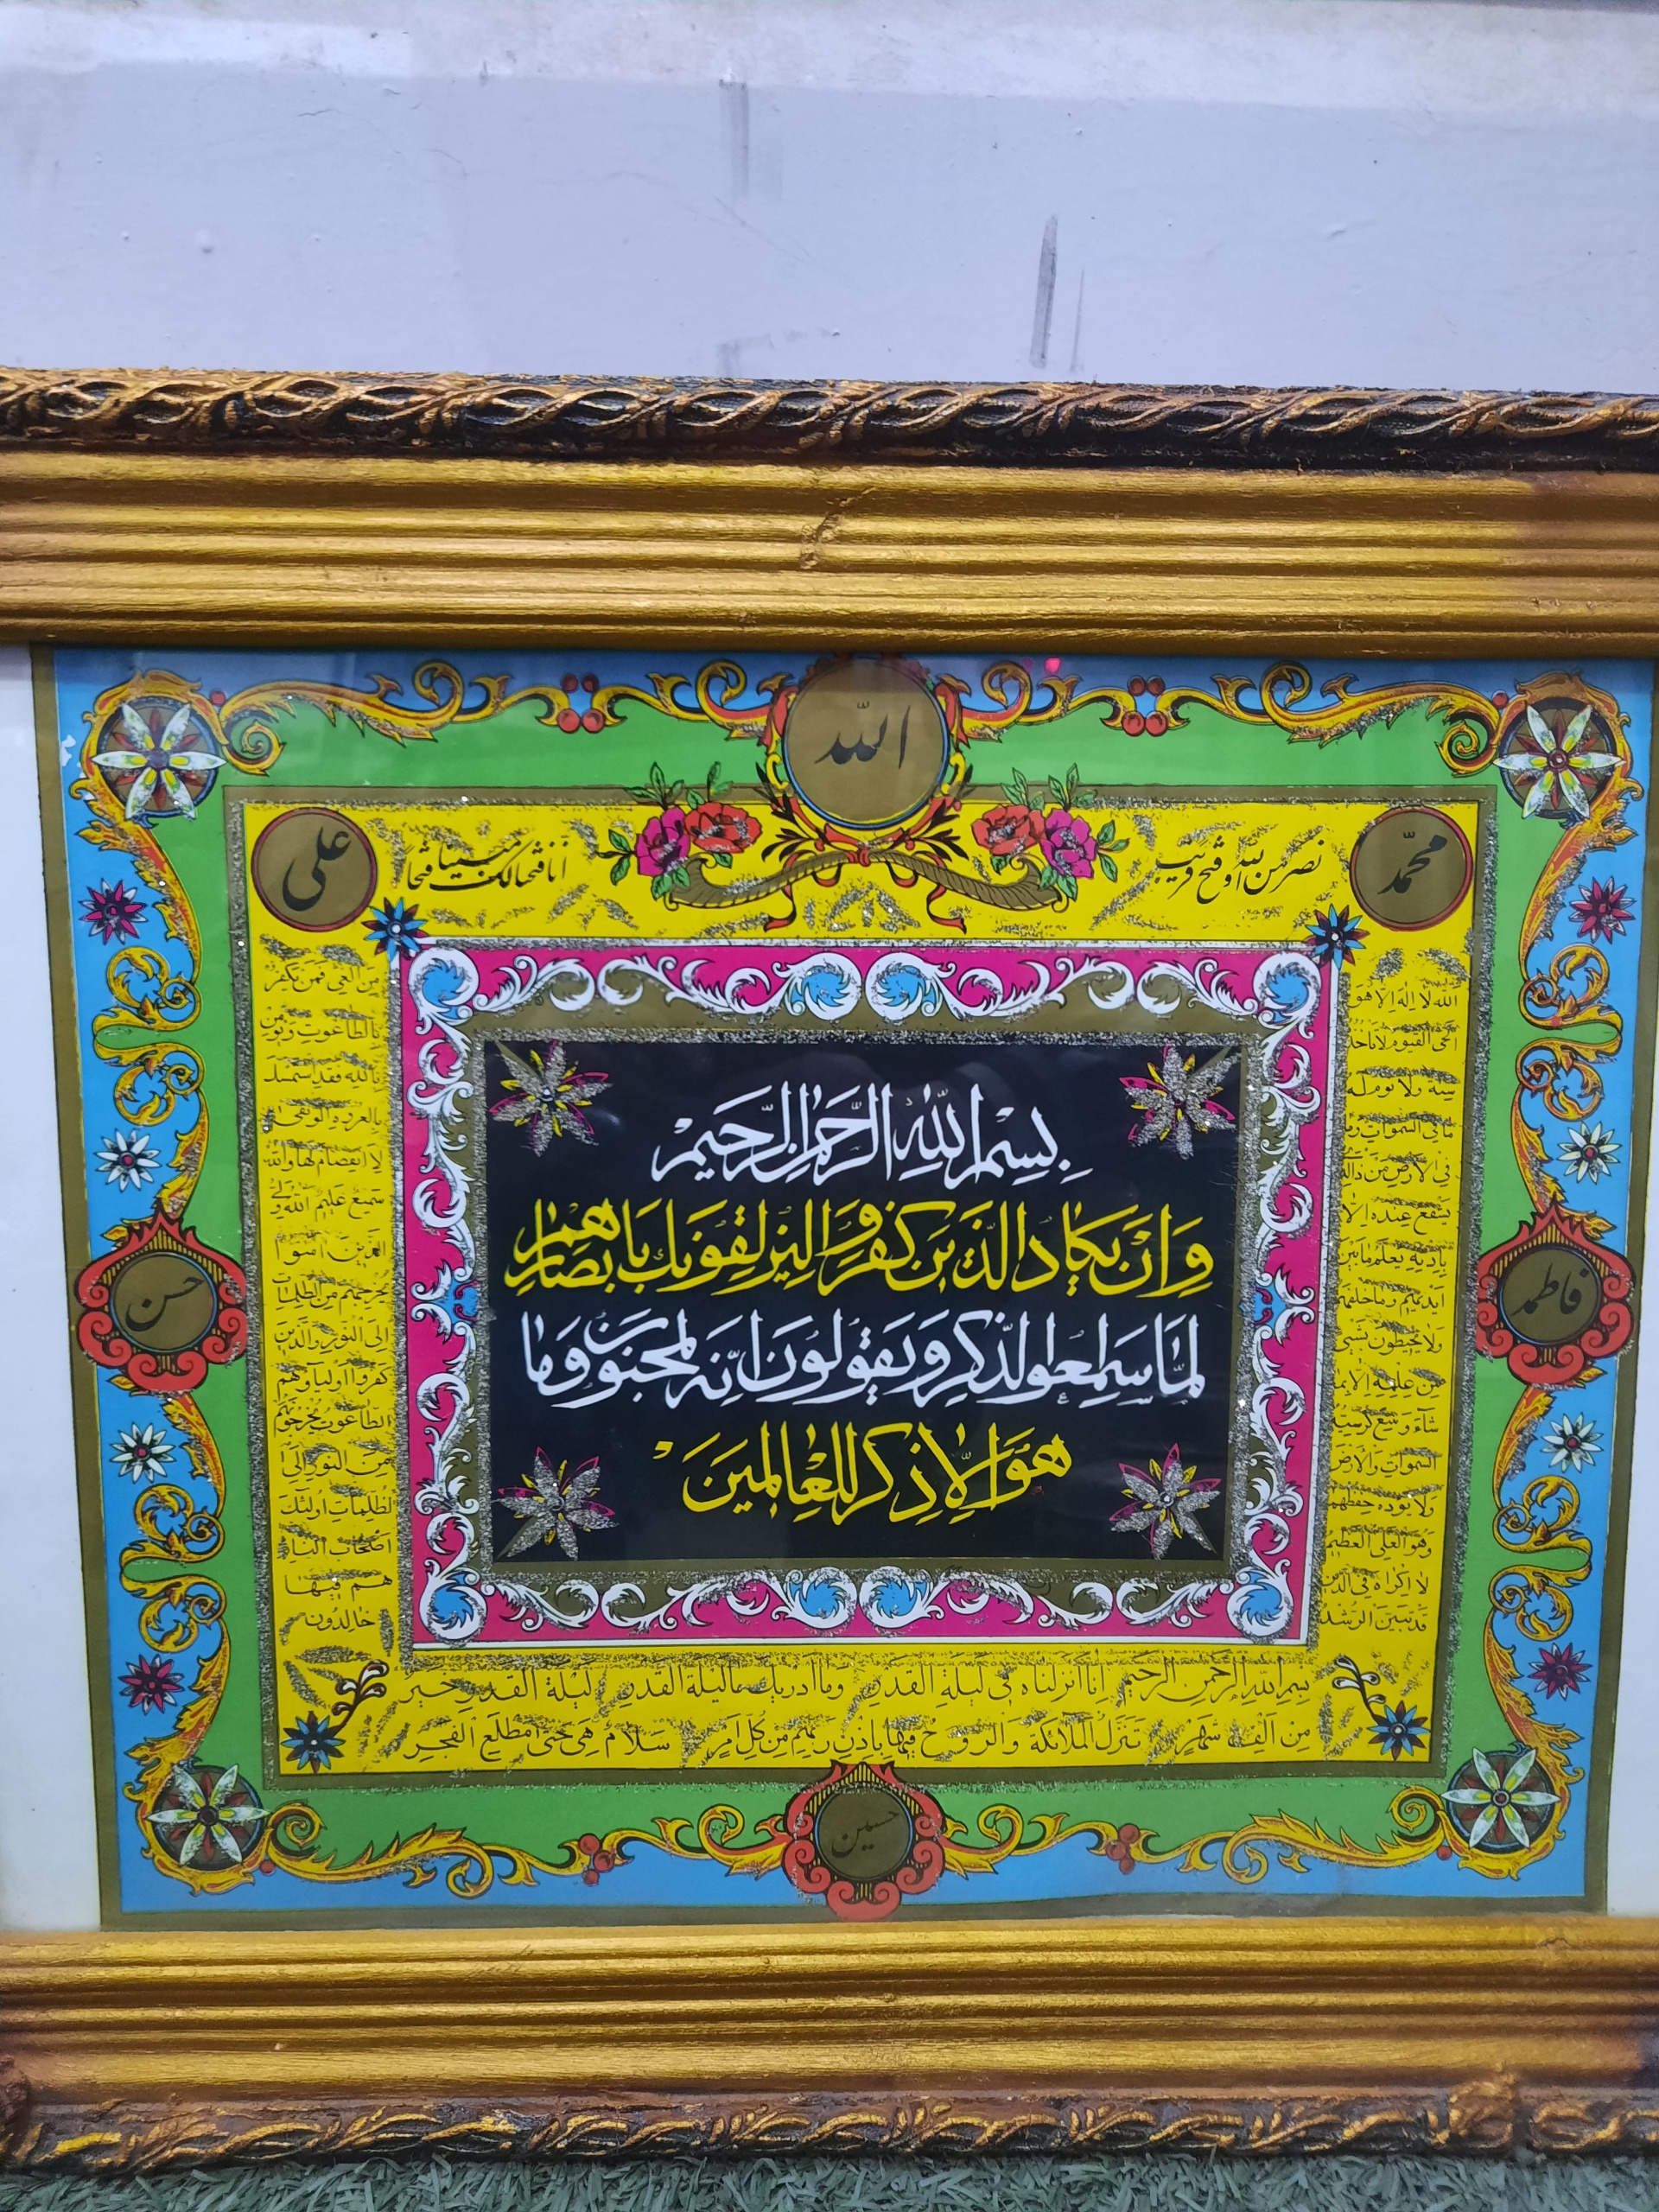 الله
محمّد
نصر من الله و فتح قریب
انا فتحنا لک فتحا مبینا
علی
بِسْمِ اللهِ الرَّحْمٰنِ الرَّحیمْ
وَاِنْ یَکادُ الَّذینَ کَفَرُوا لَیُزْلِقُونَکَ بِاَبْصارِهِمْ
لَمّا سَمِعُوا الذِّکْرَ وَیَقُولُونَ اِنَّهُ لَمَجْنُونٌ وَما
هُوَ اِلّا ذِکْرٌ لِلْعالَمینَ
فاطمه
حسن
الله لا اله الا هو
الحی القیوم لا تاخذه
سنه ولا نوم له
ما فی السموات وما
فی الارض من ذالذی
یشفع عنده الا
باذنه یعلم ما بین
ایدیهم وما خلفهم
ولا یحیطون بشیء
من علمه الا بما
شاء وسع کرسیه
السموات والارض
ولا یؤده حفظهما
وهو العلی العظیم
لا اکراه فی الدین
قد تبین الرشد
من الغی فمن یکفر
بالطاغوت ویؤمن
بالله فقد استمسک
بالعروة الوثقی
لا انفصام لها والله
سمیع علیم الله ولی
الذین امنوا
یخرجهم من الظلمات
الی النور والذین
کفروا اولیاؤهم
الطاغوت یخرجونهم
من النور الی
الظلمات اولئک
اصحاب النار
هم فیها
خالدون
بسم الله الرحمن الرحیم انا انزلناه فی لیلة القدر وما ادریک ما لیلة القدر لیلة القدر خیر
من الف شهر تنزل الملائکة والروح فیها باذن ربهم من کل امر سلام هی حتی مطلع الفجر
حسین